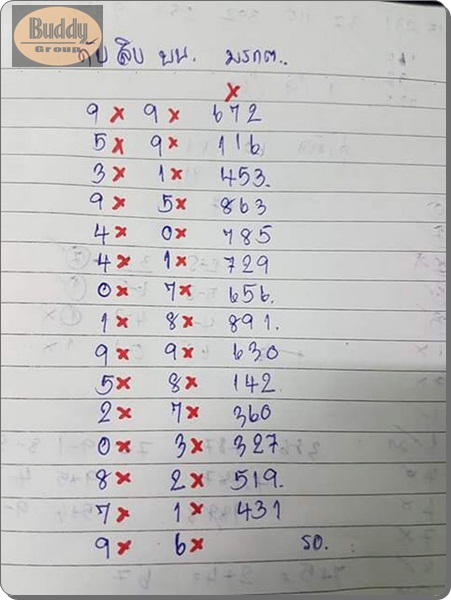 Buddy
Group
ดับ สิบ บน. มรกต..
x
9 x 9 x 672
5 x 9 x 116
3 x 1 x 453.
9 x 5 x 863
4 x 0 x 785
4 x 1 x 729
0 x 7 x 656.
1 x 8 x 891.
9 x 9 x 630
5 x 8 x 142
2 x 7 x 360
0 x 3 x 327
8 x 2 x 519.
7 x 1 x 431
9 x 6 x รอ.